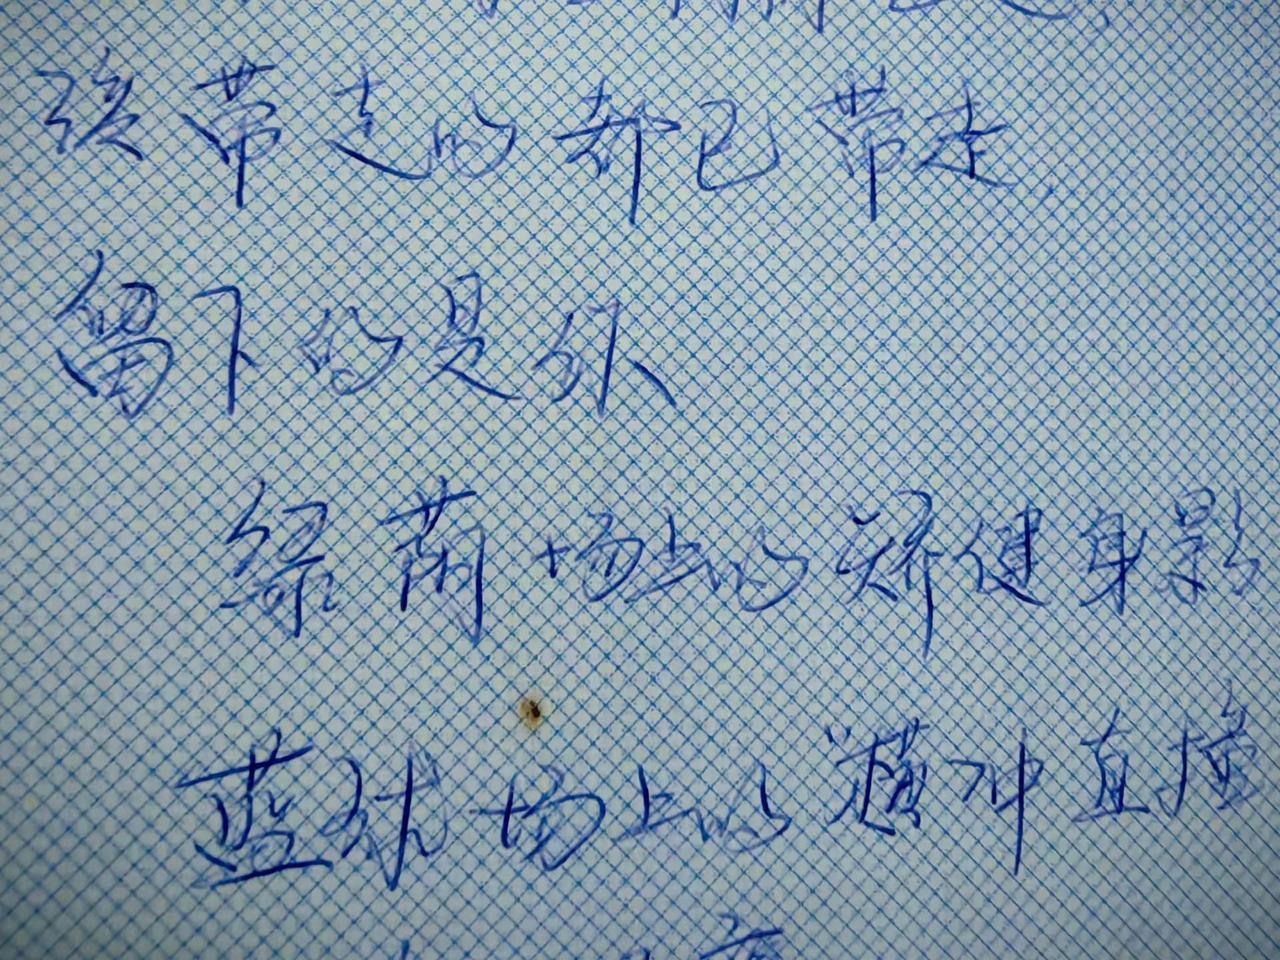 该带走的都已带走,
留下的是你
绿茵场上的矫健身影
蓝球场上的横冲直撞